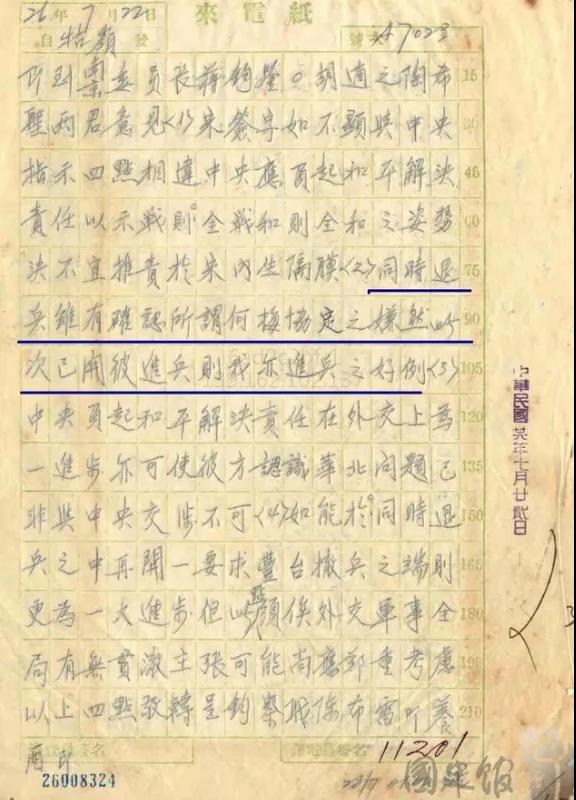 26年7月22日
來電紙
自牯嶺發
號次 47023
即到密委員長蔣鈞鑒。胡適之陶希 15
聖兩君意見(1)宋簽字如不顯與中央 30
指示四點相違中央應負起和平解決 45
責任以示戰則全戰和則全和之姿勢 60
決不宜推責於宋內生隔膜(2)同時退 75
兵雖有確認所謂何梅協定之嫌然此 90
次已開彼進兵則我亦進兵之好例(3) 105
中央負起和平解決責任在外交上為 120
一進步亦可使彼方認識華北問題已 135
非與中央交涉不可(4)如能於同時退 150
兵之中再開一要求豐台撤兵之端則 165
更為一大進步但此點須俟外交軍事全 180
局有無貫澈主張可能尚應鄭重考慮 195
以上四點敬轉呈鈞察職陳布雷叩養 210
酉印
11201
26008324
國史館
中華民國廿六年七月廿貳日